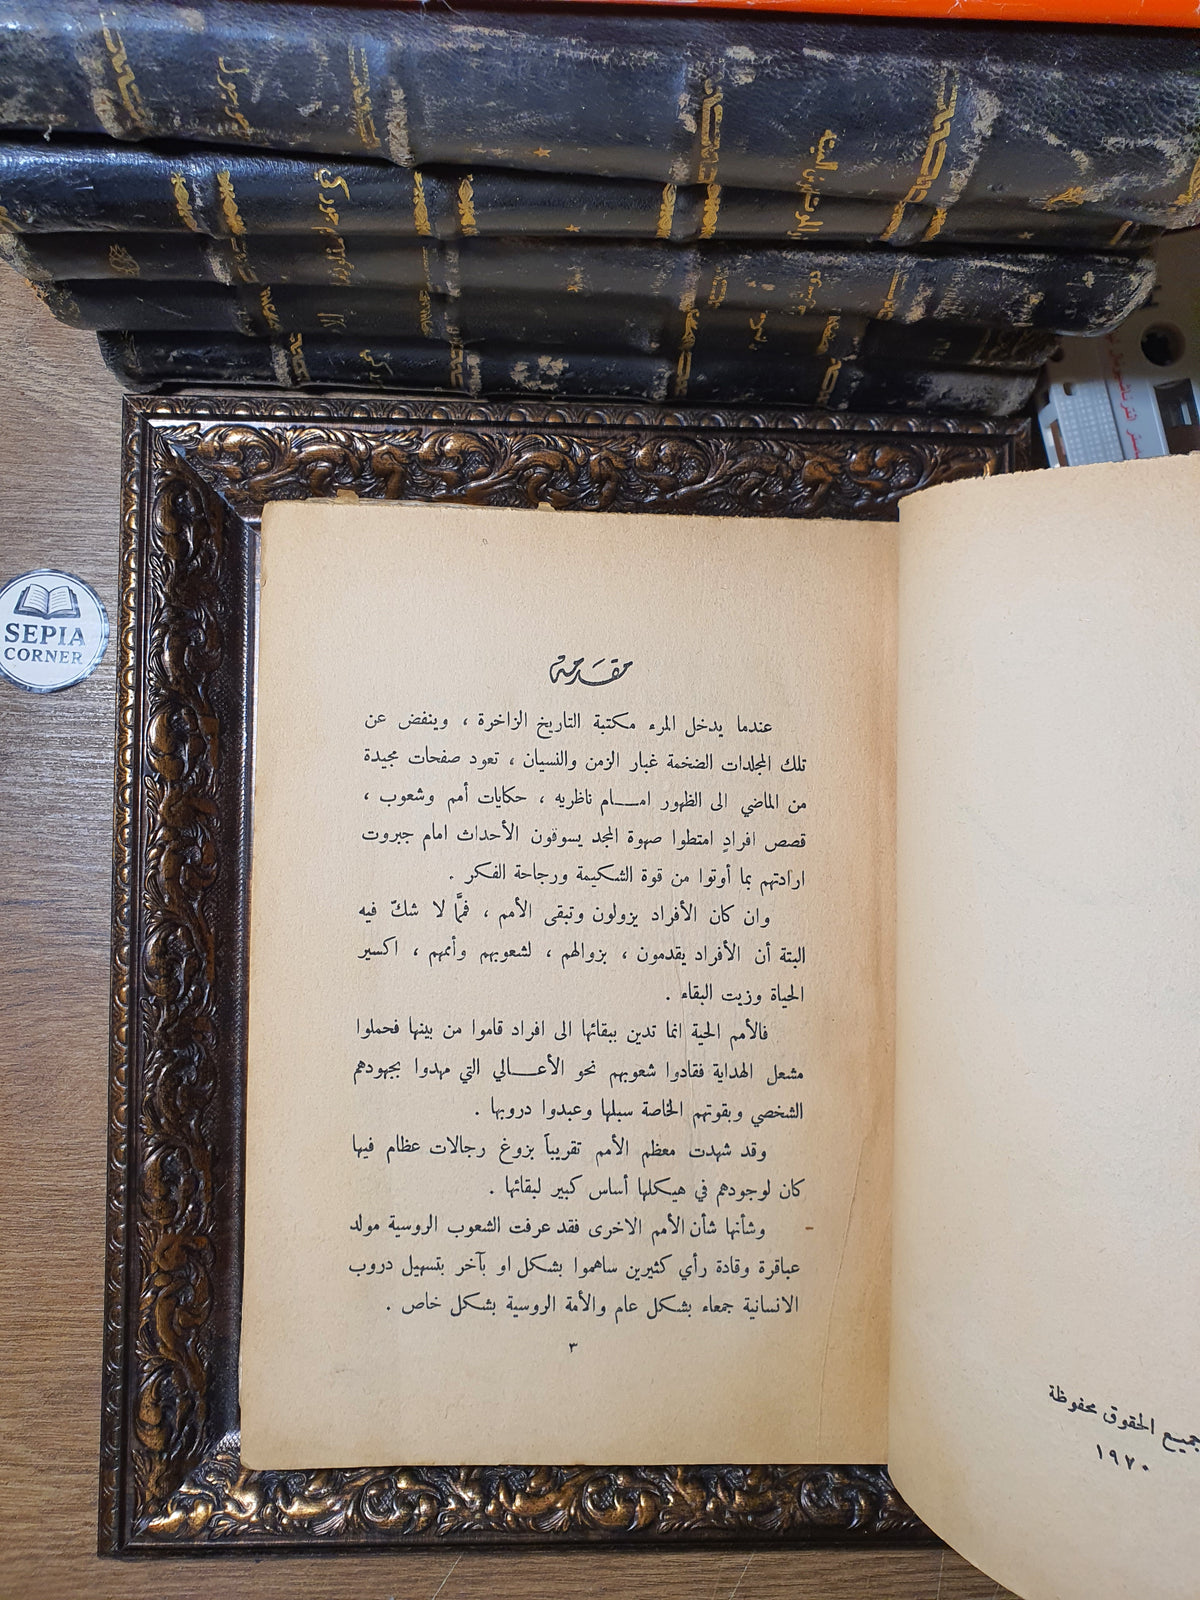 SEPIA
CORNER
مقدمة
عندما يدخل المرء مكتبة التاريخ الزاخرة ، وينفض عن
تلك المجلدات الضخمة غبار الزمن والنسيان ، تعود صفحات مجيدة
من الماضي الى الظهور امـــام ناظريه ، حكايات أمم وشعوب ،
قصص افرادٍ امتطوا صهوة المجد يسوقون الأحداث امام جبروت
ارادتهم بما أوتوا من قوة الشكيمة ورجاحة الفكر .
وان كان الأفراد يزولون وتبقى الأمم ، فمَّا لا شكّ فيه
البتة أن الأفراد يقدمون ، بزوالهم ، لشعوبهم وأممهم ، اكسير
الحياة وزيت البقاء .
فالأمم الحية انما تدين ببقائها الى افراد قاموا من بينها فحملوا
مشعل الهداية فقادوا شعوبهم نحو الأعـــالي التي مهدوا بجهودهم
الشخصي وبقوتهم الخاصة سبلها وعبدوا دروبها .
وقد شهدت معظم الأمم تقريباً بزوغ رجالات عظام فيها
كان لوجودهم في هيكلها أساس كبير لبقائها .
وشأنها شأن الأمم الاخرى فقد عرفت الشعوب الروسية مولد
عباقرة وقادة رأي كثيرين ساهموا بشكل او بآخر بتسهيل دروب
الانسانية جمعاء بشكل عام والأمة الروسية بشكل خاص .
٣
جميع الحقوق محفوظة
١٩٧٠